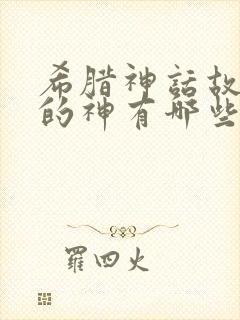 希腊神話故
的神有哪些
羅四火